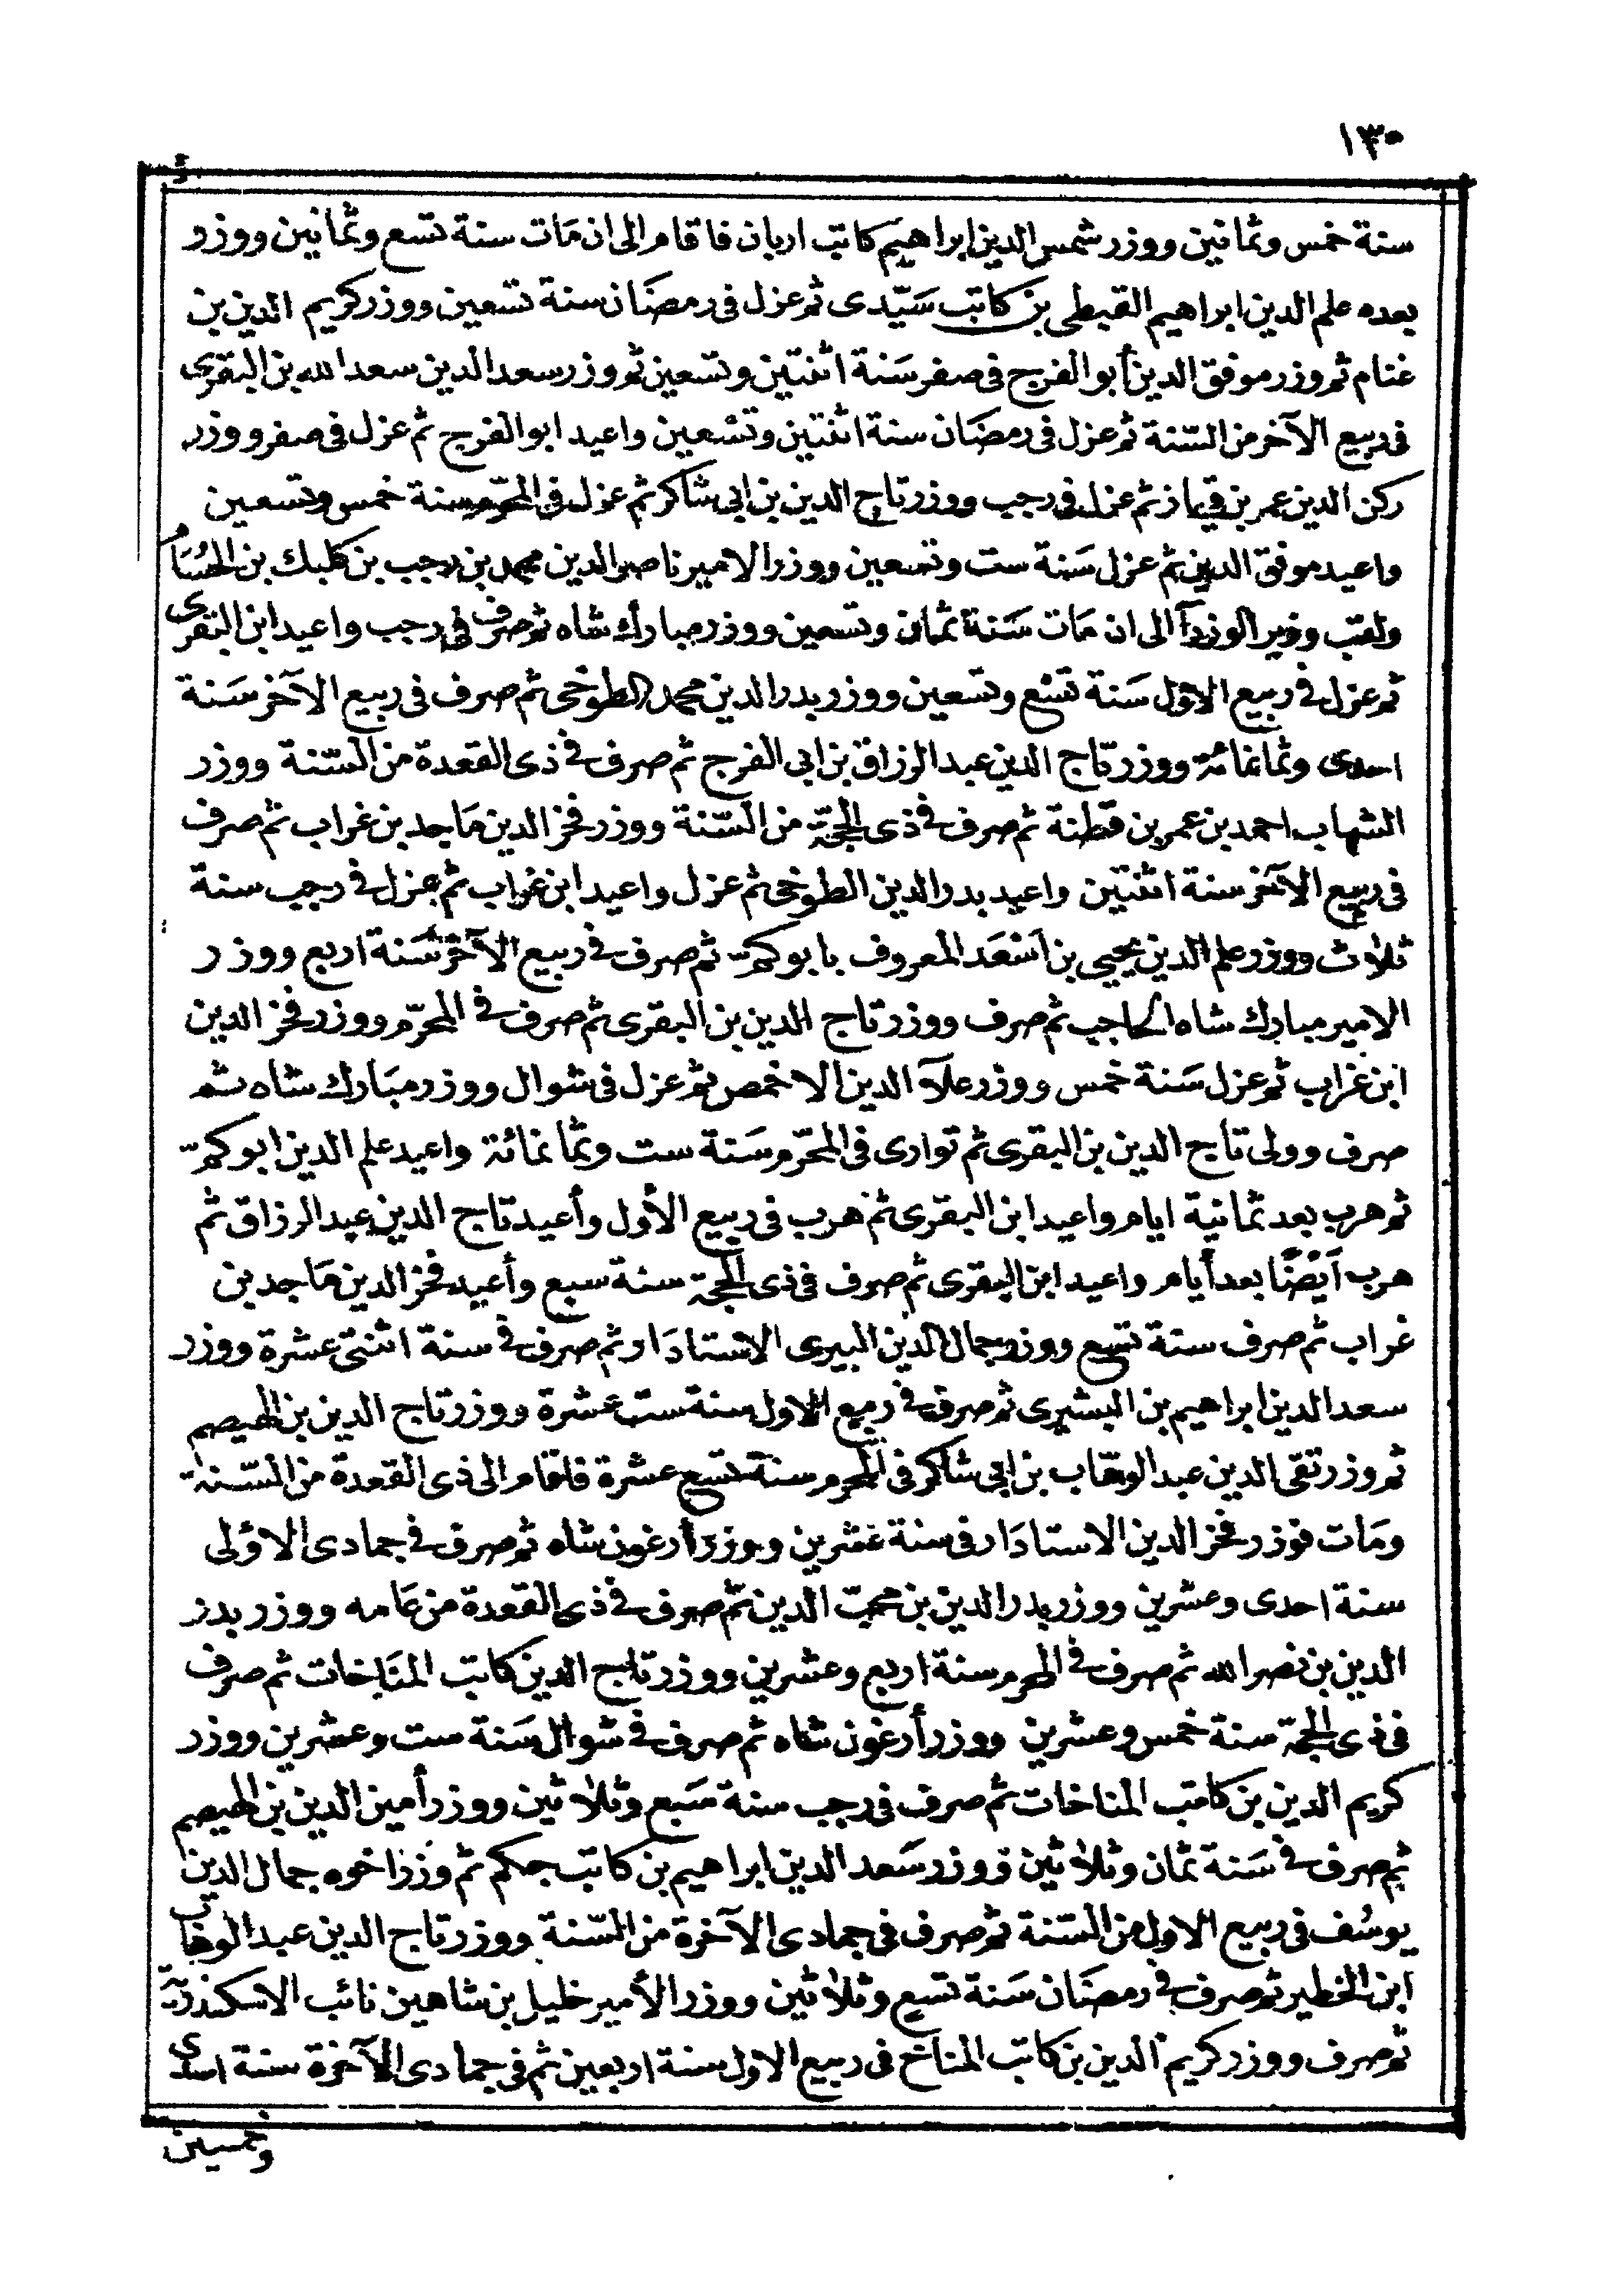 ١٣٠
سنة خمس وثمانين ووزر شمس الدين ابراهيم كاتب اربان فاقام الى ان مَات سنة تسع وثمانين ووزر
بعده علم الدين ابراهيم القبطى بن كاتب سَيّدى ثم عزل فى رمضَان سنة تسعين ووزر كريم الدين بن
غنام ثم وزر موفق الدين أبو الفرج فى صفر سَنة اثنتين وتسعين ثم وزر سعد الدين سعد الله بن البقرى
فى ربيع الآخر من السّنة ثم عزل فى رمضَان سنة اثنتين وتسعين واعيد ابو الفرج ثم عزل فى صفر ووزر
ركن الدين عمر بن قيماز ثم عزل فى رجب ووزر تاج الدين بن ابى شاكر ثم عزل فى المحرّم سنة خمس وتسعين
واعيد موفق الدين ثم عزل سَنة ست وتسعين ووزر الامير ناصر الدين محمد بن رجب بن كلبك بن الحُسَام
ولقب وزير الوزرآ الى ان مَات سَنة ثمان وتسعين ووزر مبارك شاه ثم صرف فى رجب واعيد ابن البقرى
ثم عزل فى ربيع الاول سَنة تسْع وتسعين ووزر بدر الدين محمد الطوخى ثم صرف فى ربيع الآخر سَنة
احدى وثمانمائة ووزر تاج الدين عبد الرزاق بن ابى الفرج ثم صرف فى ذى القعدة من السّنة ووزر
الشهاب احمد بن عمر بن قطنة ثم صرف فى ذى الحجّة من السّنة ووزر فخر الدين مَاجد بن غراب ثم صرف
فى ربيع الآخر سنة اثنتين واعيد بدر الدين الطوخى ثم عزل واعيد ابن غراب ثم عزل فى رجب سنة
ثلاث ووزر علم الدين يحيى بن اسْعَد المعروف بابو كمّ ثم صرف فى ربيع الآخر سَنة اربع ووزر
الامير مبارك شاه الحاجب ثم صرف ووزر تاج الدين بن البقرى ثم صرف فى المحرّم ووزر فخر الدين
ابن غراب ثم عزل سَنة خمس ووزر علآ الدين الاخمص ثم عزل فى شوال ووزر مبَارك شاه ثم
صرف وولى تاج الدين بن البقرى ثم توارى فى المحرّم سَنة ست وثمانمائة واعيد علم الدين ابو كمّ
ثم هرب بعد ثمانية ايام واعيد ابن البقرى ثم هرب فى ربيع الأول وأعيد تاج الدين عبد الرزاق ثم
هرب اَيْضًا بعد أيام واعيد ابن البقرى ثم صرف فى ذى الحجّة سنة سبع وأعيد فخر الدين مَاجد بن
غراب ثم صرف سنة تسع ووزر جمال الدين البيرى الاستادَار ثم صرف فى سنة اثنتى عشرة ووزر
سعد الدين ابراهيم بن البشيرى ثم صرف فى ربيع الاول سنة ست عشرة ووزر تاج الدين بن الهيصم
ثم وزر تقى الدين عبد الوهّاب بن ابى شاكر فى المحرم سنة تسع عشرة فاقام الى ذى القعدة من السّنة
ومَات فوزر فخر الدين الاستادَار فى سنة عشرين ووزر أرغون شاه ثم صرف فى جمادى الاولى
سنة احدى وعشرين ووزر بدر الدين بن محبّ الدين ثم صرف فى ذى القعدة من عَامه ووزر بدر
الدين بن نصر الله ثم صرف فى المحرم سنة اربع وعشرين ووزر تاج الدين كاتب المنَاخات ثم صرف
فى ذى الحجّة سنة خمس وعشرين ووزر أرغون شاه ثم صرف فى شوال سَنة ست وعشرين ووزر
كريم الدين بن كاتب المناخات ثم صرف فى رجب سنة سَبع وثلاثين ووزر أمين الدين بن الهيصم
ثم صرف فى سَنة ثمان وثلاثين ووزر سَعد الدين ابراهيم بن كاتب جكم ثم وزر اخوه جمال الدين
يوسُف فى ربيع الاول من السّنة ثم صرف فى جمادى الآخرة من السّنة ووزر تاج الدين عبد الوهاب
ابن الخطير ثم صرف فى رمضَان سَنة تسع وثلاثين ووزر الأمير خليل بن شاهين نائب الاسكندريّة
ثم صرف ووزر كريم الدين بن كاتب المناخ فى ربيع الاول سنة اربعين ثم فى جمادى الآخرة سنة احدى
وخمسين